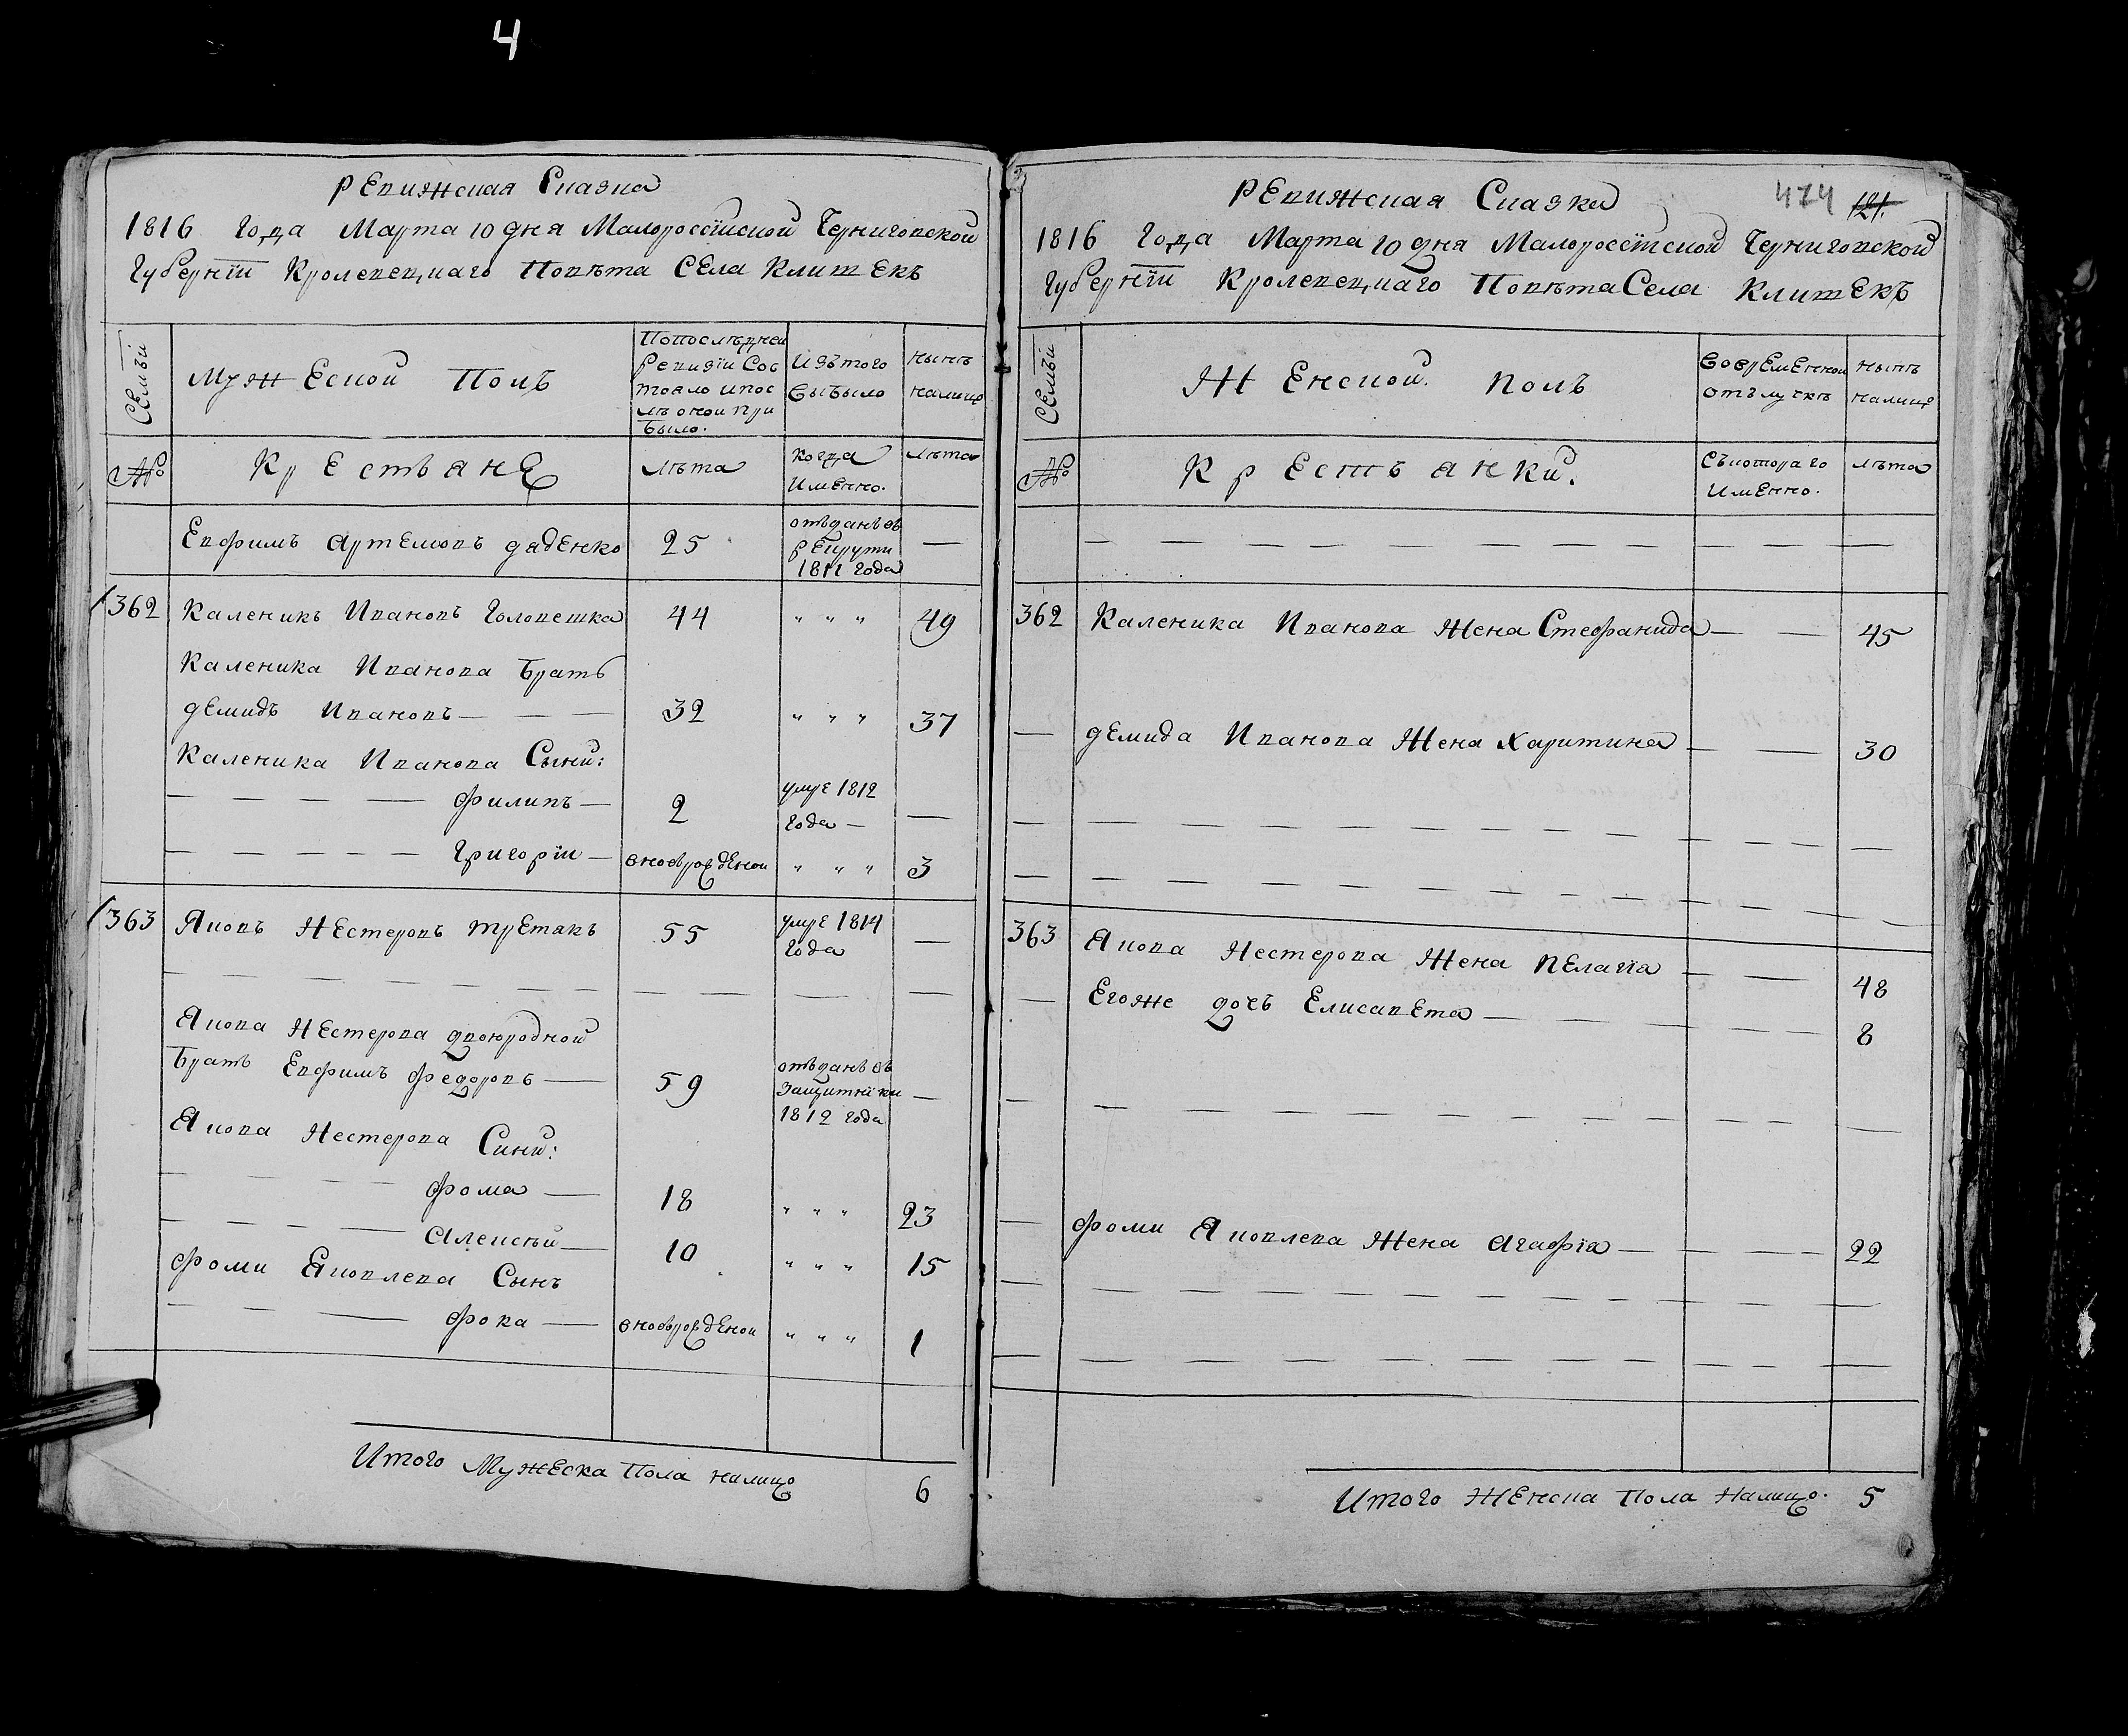 4
Ревижская Сказка
1816 года Марта 10 дня Малороссїйской Черниговской
Губернїи Кролевецкаго Повѣта Села Клишекъ
Семьи
Мужеской Полъ
Попослѣдней
Ревизїи Сос
тояло ипос
лѣ оной при
было.
Изътого
выбыло
нынѣ
налицо
№
Крестьяне
лѣта
когда
именно.
лѣта
Евфимъ Артемовъ дяденко 25 отъданъ въ
рекруты
1811 года —
362 Каленикъ Ивановъ Головешка 44 " " " 49
Каленика Иванова братъ
демидъ Ивановъ — — — 32 " " " 37
Каленика Иванова Сыни:
— — — — филипъ — 2 умре 1812
года — —
— — — — — Григорїи — вновърожденои " " " 3
363 Яковъ Нестеровъ третякъ 55 умре 1814
года —
— — — — — — — — — — — —
Якова Нестерова двоюродной
братъ Евфимъ федоровъ — 59 отъданъ въ
защитнїки
1812 года —
Якова Нестерова Сини:
— — — — фома — 18 " " " 23
— — — — Алексѣй — 10 " " " 15
фоми Яковлева Сынъ
— — — фока — вновърожденои " " " 1
Итого Мужеска Пола налицо 6
Ревижская Сказка
474 121.
1816 года Марта 10 дня Малороссїйской Черниговской
Губернїи Кролевецкаго Повѣта Села Клишекъ
Семьи
Женской. полъ
Вовременной
отълучкѣ
нынѣ
налицо
№
Крестьянки.
Съкотораго
именно.
лѣта
— — — — — — — — — — — — —
362 Каленика Иванова жена Стефанида — — 45
— демида Иванова Жена Харитина — — 30
— — — — — — — — — — — — — — —
— — — — — — — — — — — — — — —
363 Якова Нестерова Жена Пелагїа — — 48
— Егоже дочъ Елисавета — — — — — — 8
— — — — — — — — — — — — —
— фоми Яковлева Жена Агафїа — — — — 22
— — — — — — — — — — — — — —
— — — — — — — — — — — — —
Итого Женска Пола Налицо. 5